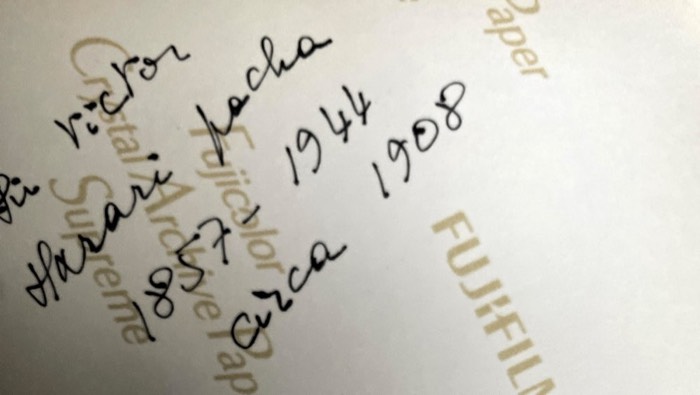 Sir Victor
Harari Pacha
1857-1944
Circa 1908
Fujicolor
Crystal Archive Paper
Supreme
FUJIFILM
Paper